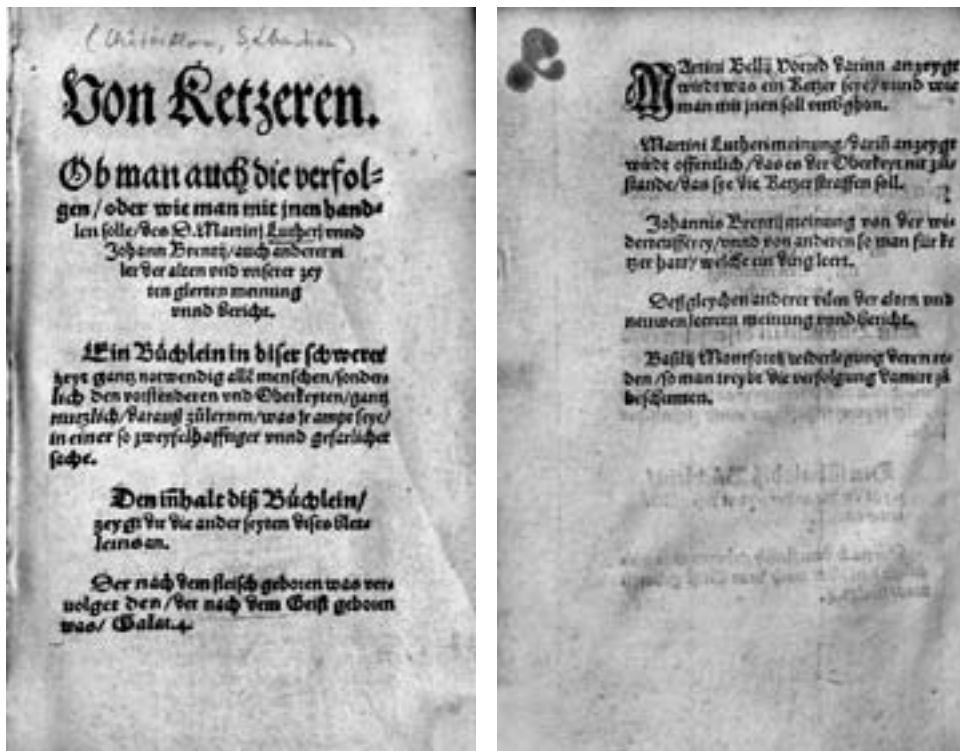 (Châteillon, Sébastien)
Von Ketzeren.
Ob man auch die verfol-
gen / oder wie man mit jnen hand-
len solle / des D. Martinj Lutherj vnnd
Johann Brentij / auch anderer vi
ler der alten vnd vnserer zey
ten glerten meinung
vnnd bericht.
Ein Büchlein in diser schwerer
zeyt gantz notwendig allẽ menschen / sonder-
lich den vorstenderen vnd Oberkeyten / gantz
nutzlich / darauß zůlernen / was jr ampt seye /
in einer so zweyfelhafftiger vnnd geferlicher
sache.
Den iñhalt diß Büchlein /
zeygt dir die ander seyten dises blet-
leins an.
Der nach dem fleisch geboren was ver-
uolget den / der nach dem Geist geboren
was / Galat. 4.
MArtini Bellij Vorred darinn anzeygt
wirdt was ein Ketzer seye / vnnd wie
man mit jnen soll vmbghon.
Martini Lutheri meinung / dariñ anzeygt
wirdt offentlich / das es der Oberkeyt nit zů-
stande / das sye die Ketzer straffen soll.
Johannis Brentij meinung von der wi-
derteufferey / vnnd von anderen so man für ke
tzer hatt / welche ein ding leert.
Deßgleychen anderer vilen der alten vnd
neuwen leerern meinung vnnd bericht.
Basilij Montfortij widerlegung deren re-
den / so man treybt die verfolgung damit zů
beschirmen.